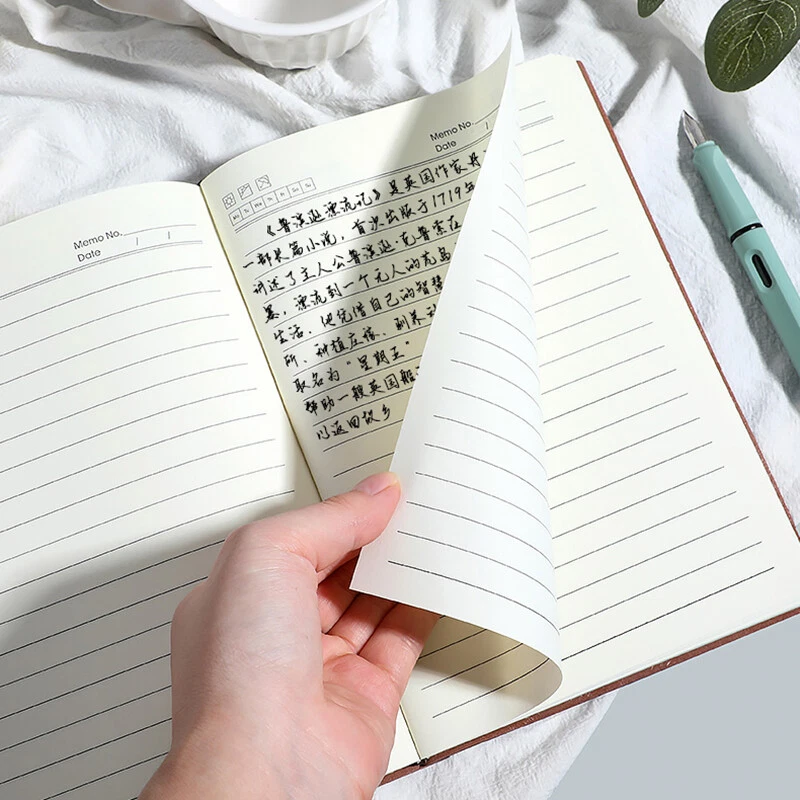 Memo No.
Date / /
Memo No.
Date /
Mo Tu We Th Fr Sa Su
《鲁滨逊漂流记》是英国作家丹
一部长篇小说，首次出版于1719年
讲述了主人公鲁滨逊·克鲁索在
漂流到一个无人的荒岛
生活。他凭借自己的智慧
所、种植庄稼、驯养
取名为“星期五”
帮助一艘英国船
以返回故乡